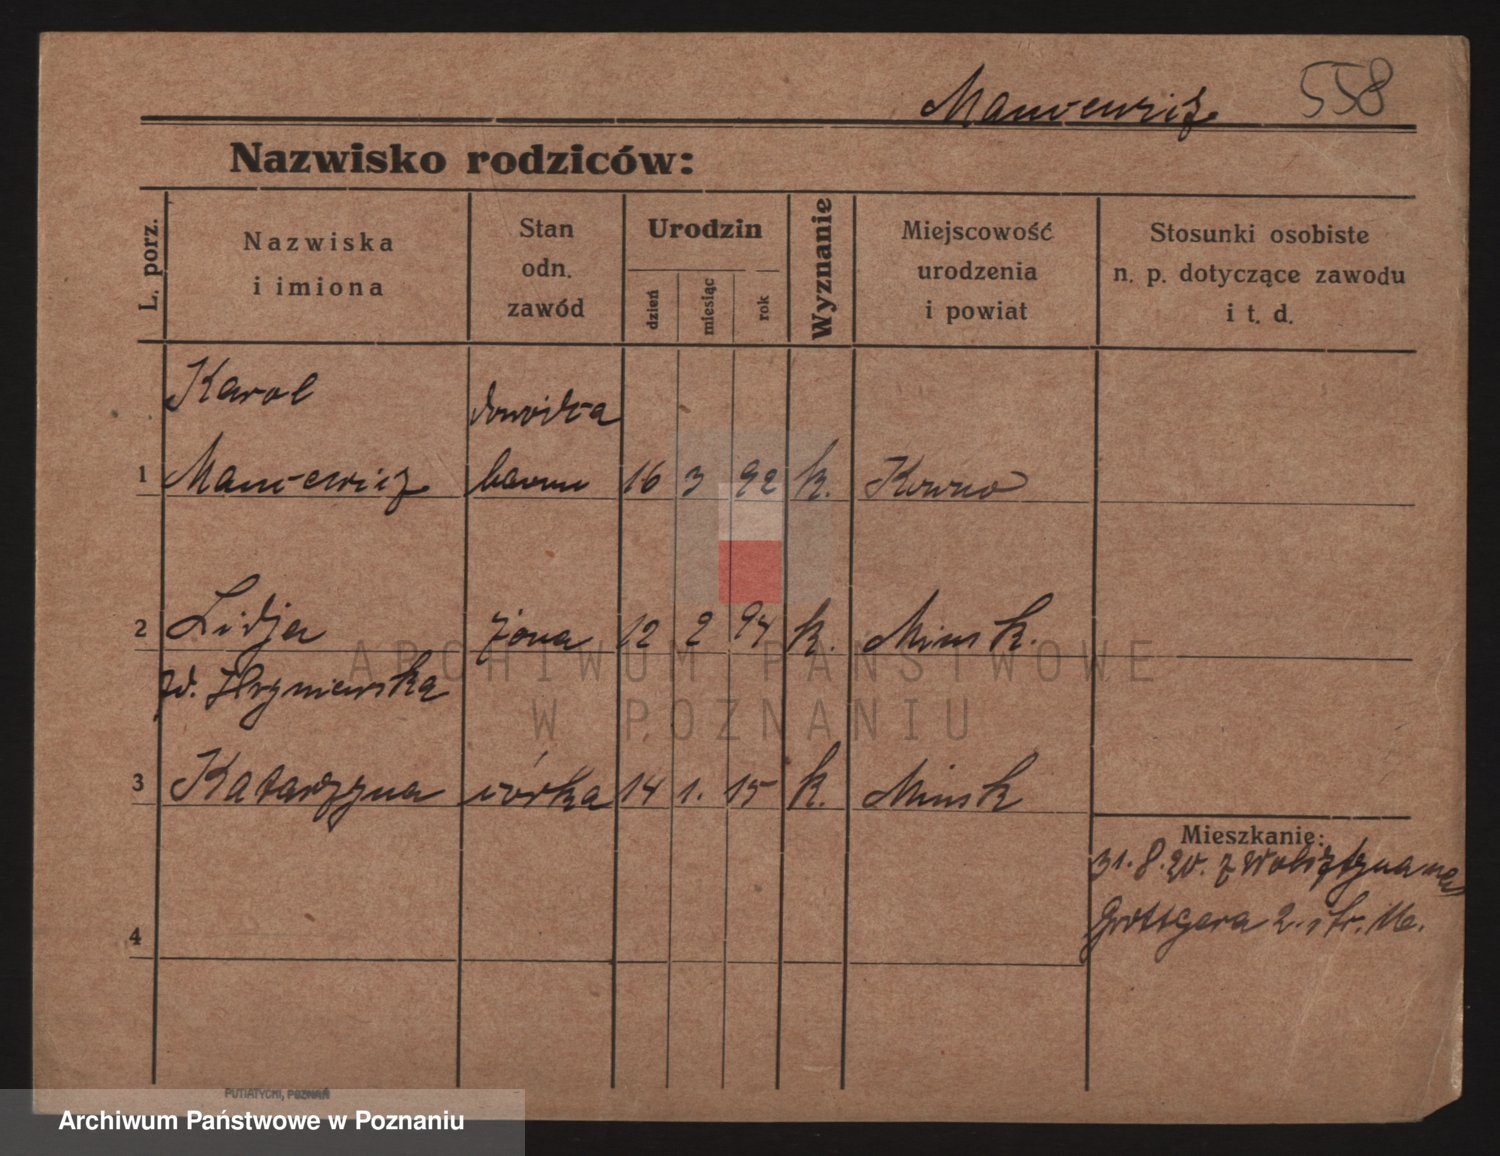 558
Mancewicz
Nazwisko rodziców:
L. porz.
Nazwiska
i imiona
Stan
odn.
zawód
Urodzin
dzień
miesiąc
rok
Wyznanie
Miejscowość
urodzenia
i powiat
Stosunki osobiste
n. p. dotyczące zawodu
i t. d.
Karol
1 Mancewicz 16 3 92 k. Kowno
2 Lidja żona 12 2 94 k. Minsk.
3 Katarzyna córka 14 1. 15 k. Minsk
Mieszkanie:
31.8.20. z
Grottgera 2. str. Me.
4
PUTIATYCKI, POZNAŃ
ARCHIWUM PAŃSTWOWE
W POZNANIU
Archiwum Państwowe w Poznaniu